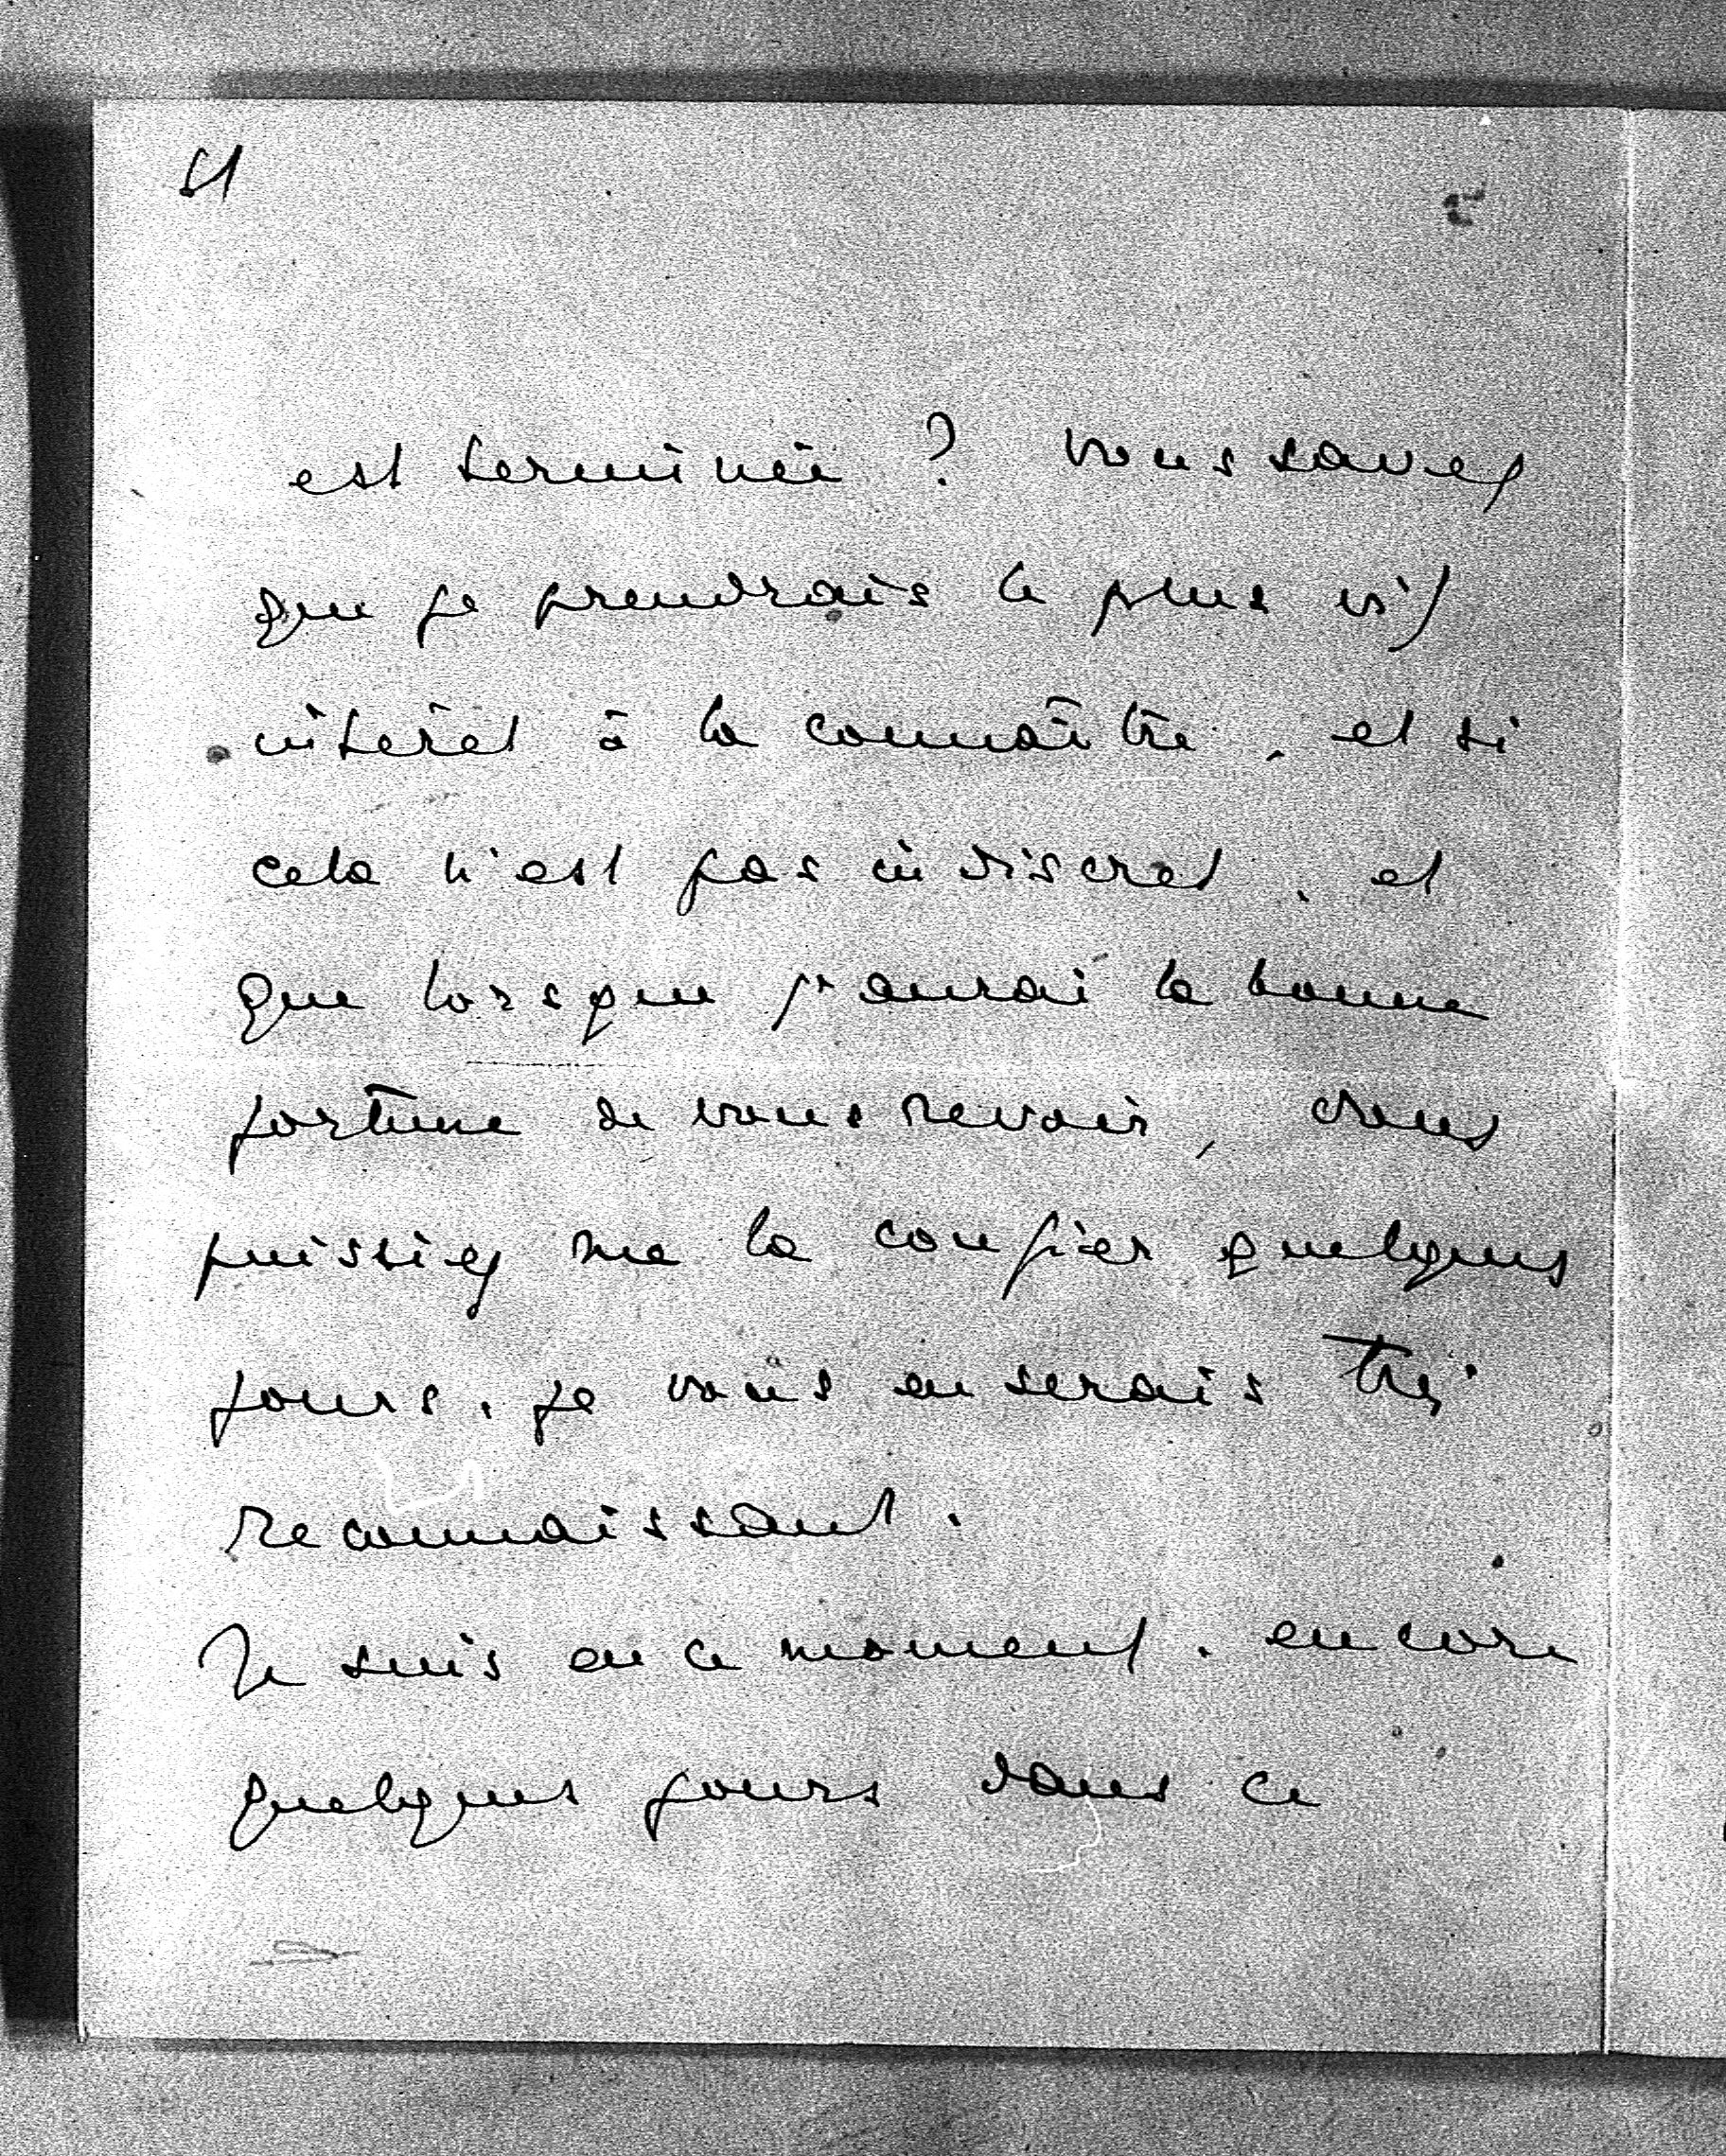 est terminée ? vous savez
que je prendrais le plus vif
intérêt à la connaître, et si
cela n'est pas indiscret, et
que lorsque j'aurai la bonne
fortune de vous revoir, vous
puissiez me la confier quelques
jours, je vous en serais très
reconnaissant.
Je suis en ce moment, encore
quelques jours dans ce